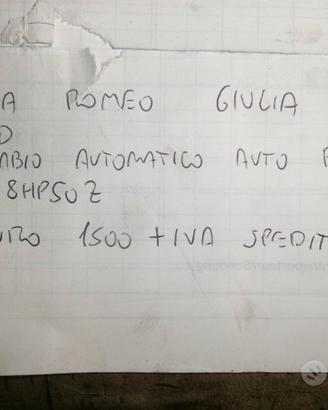 A ROMEO GIULIA
O
ABIO AUTOMATICO AUTO
8HP50Z
1500 + IVA SPEDIT